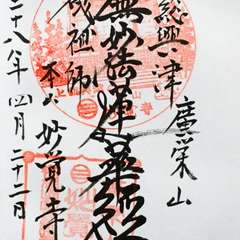 廣栄山
総興津
無妙法蓮華経
成祖師
本山 妙覚寺
二十八年四月二十二日